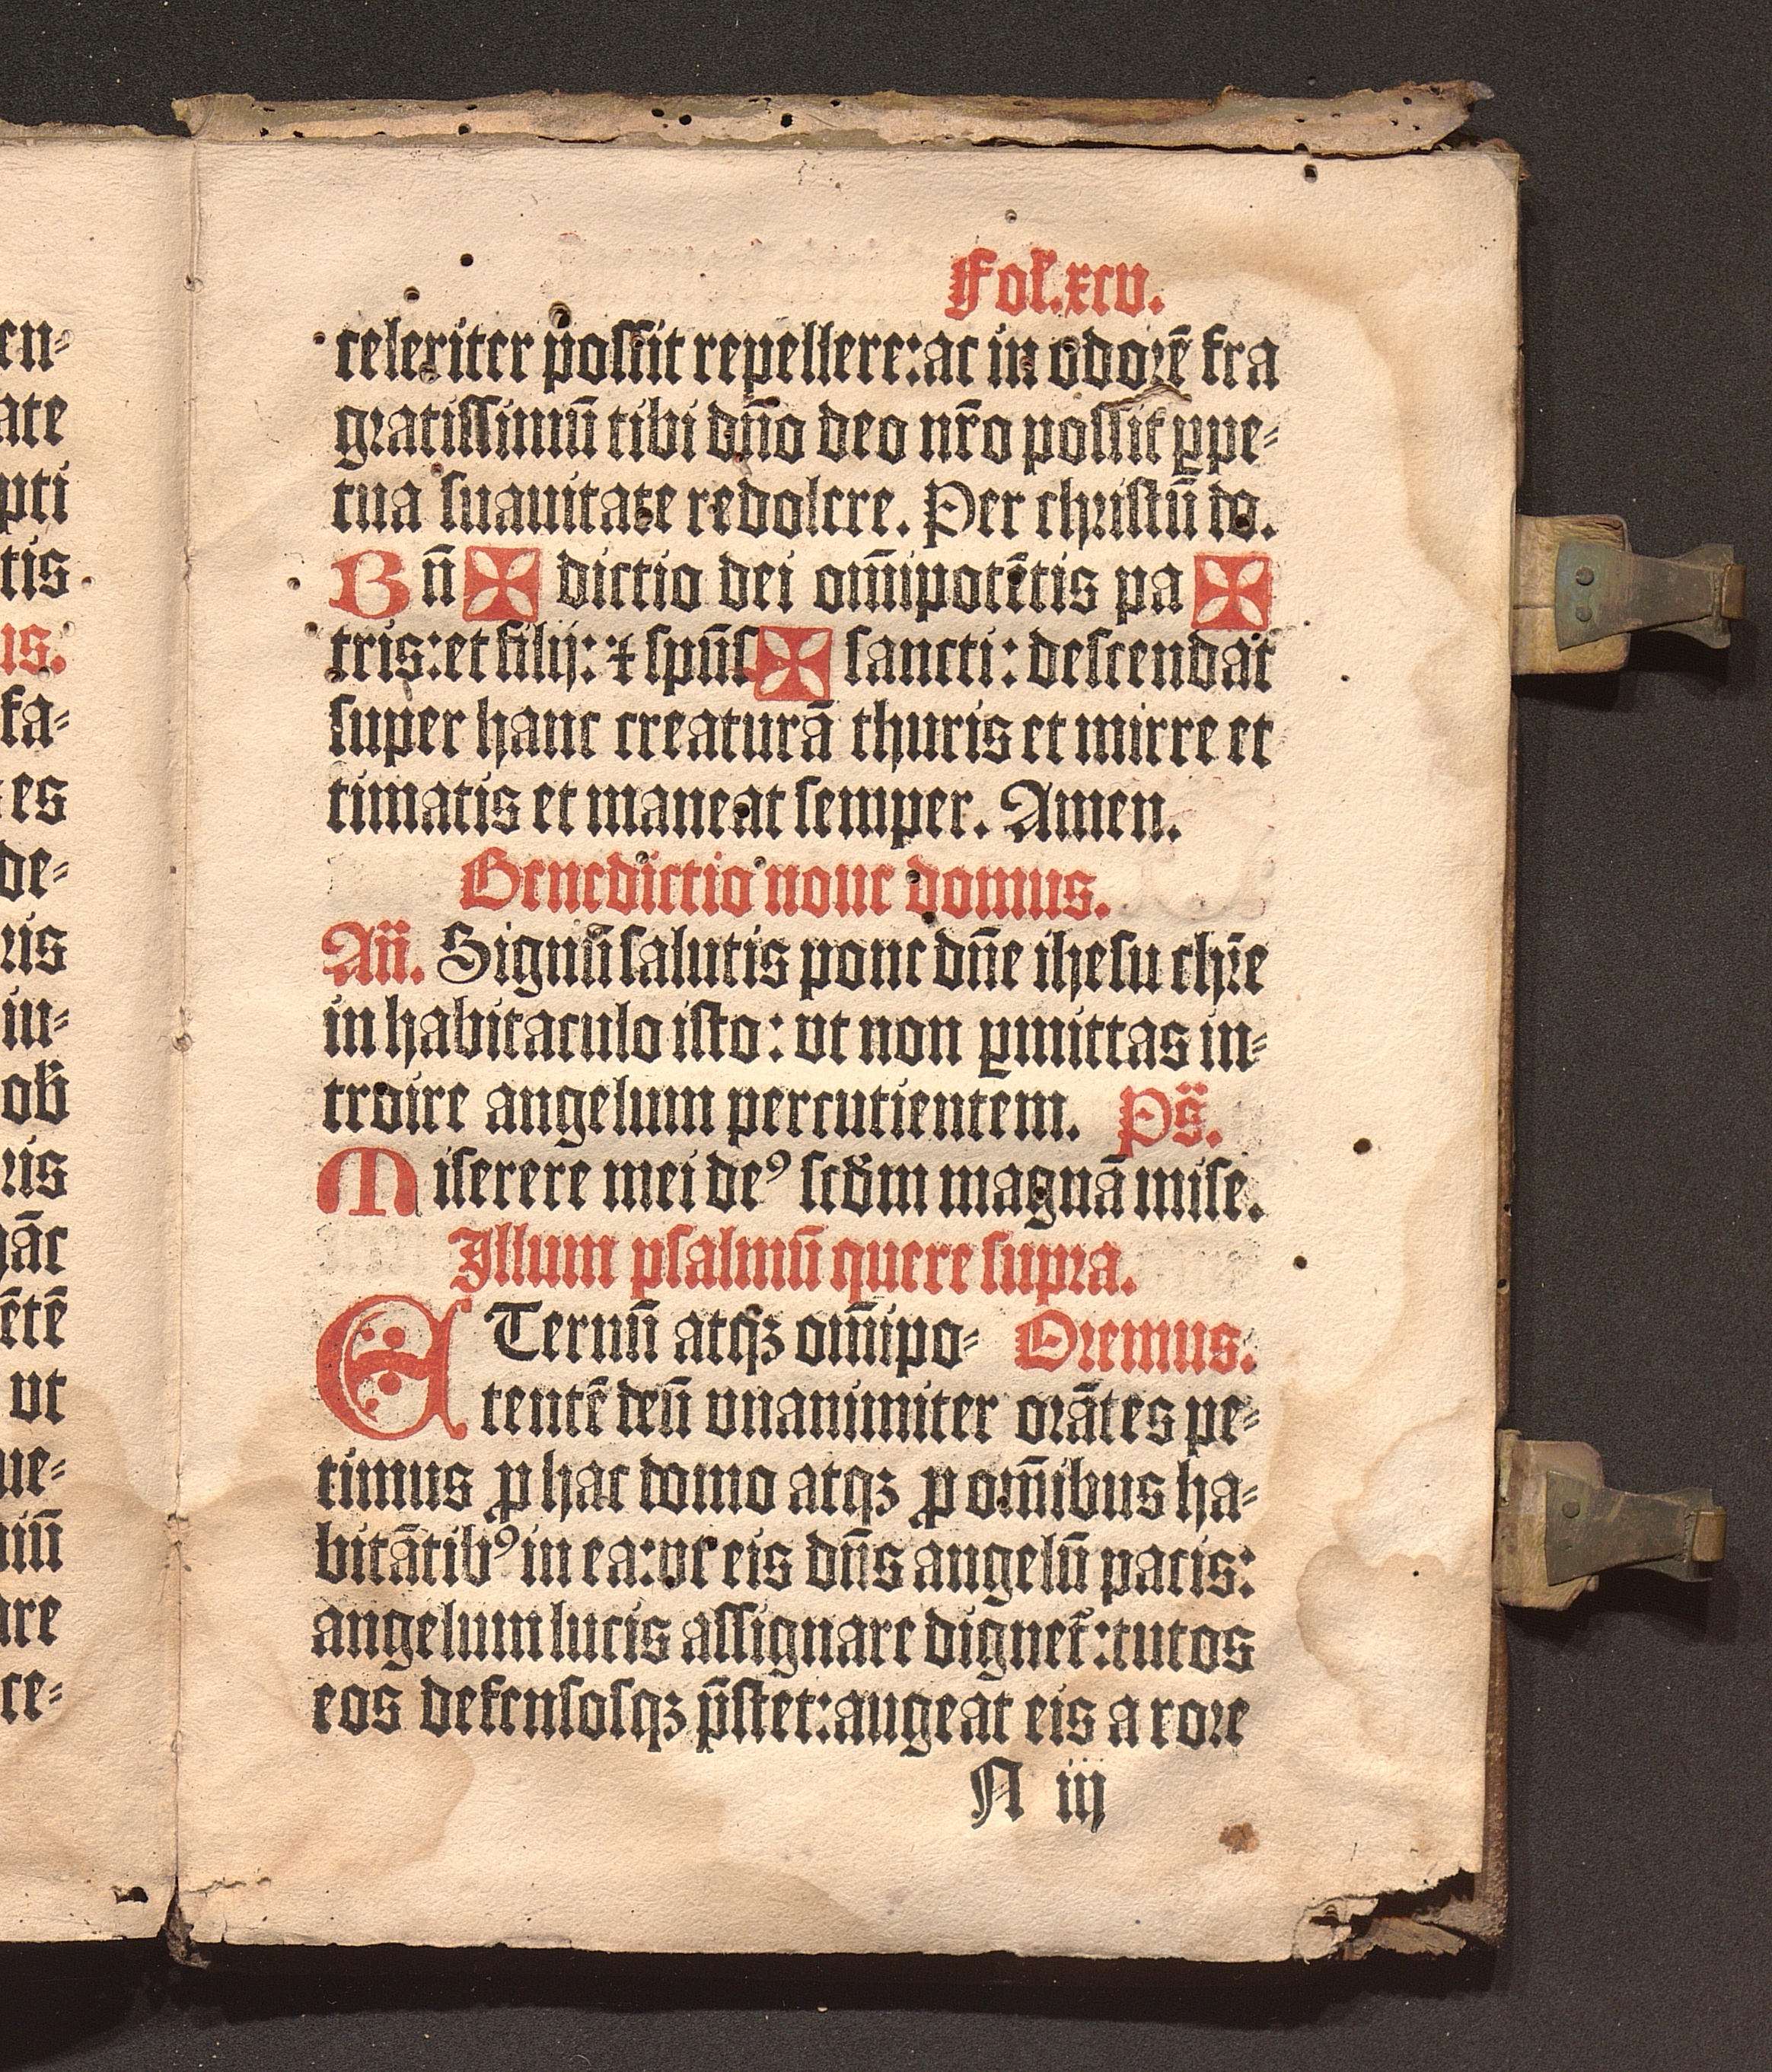 Fol. xcv.
celeriter possit repellere: ac in odorē fra
gratissimū tibi dn̄o deo nr̄o possit ꝑpe⸗
tua suauitate redolere. Per christū do.
Bn̄ ✠ dictio dei om̄ipotētis pa ✠
tris: et filij: ⁊ spūs ✠ sancti: descendat
super hanc creaturā thuris et mirre et
timatis et maneat semper. Amen.
Benedictio noue domus.
An̄. Signū salutis pone dn̄e ihesu chr̄e
in habitaculo isto: vt non ꝑmittas in⸗
troire angelum percutientem. Ps̄.
Miserere mei deꝰ scd̄m magnā mise.
Illum psalmū quere supra.
ETernū atqꝫ om̄ipo⸗ Oremus.
tentē deū vnanimiter orātes pe⸗
timus ꝓ hac domo atqꝫ ꝓ om̄ibus ha⸗
bitātibꝰ in ea: vt eis dn̄s angelū pacis:
angelum lucis assignare dignet᷑: tutos
eos defensosqꝫ p̄stet: augeat eis a rore
N iij
en⸗
ate
pti
tis
us.
fa⸗
es
de⸗
ris
iu⸗
ob
ris
āc
ētē
vt
ue⸗
iū
are
ce⸗